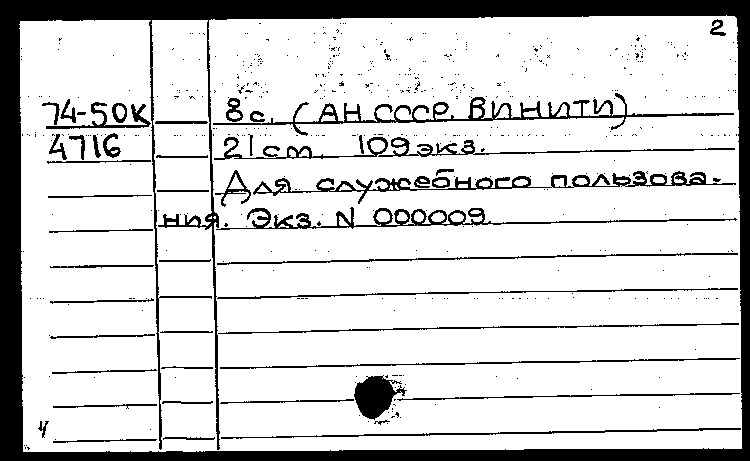 2
74-50К 8 с. (АН СССР. ВИНИТИ)
4716 21 cm. 109 экз.
Для служебного пользова-
ния. Экз. N 000009
4